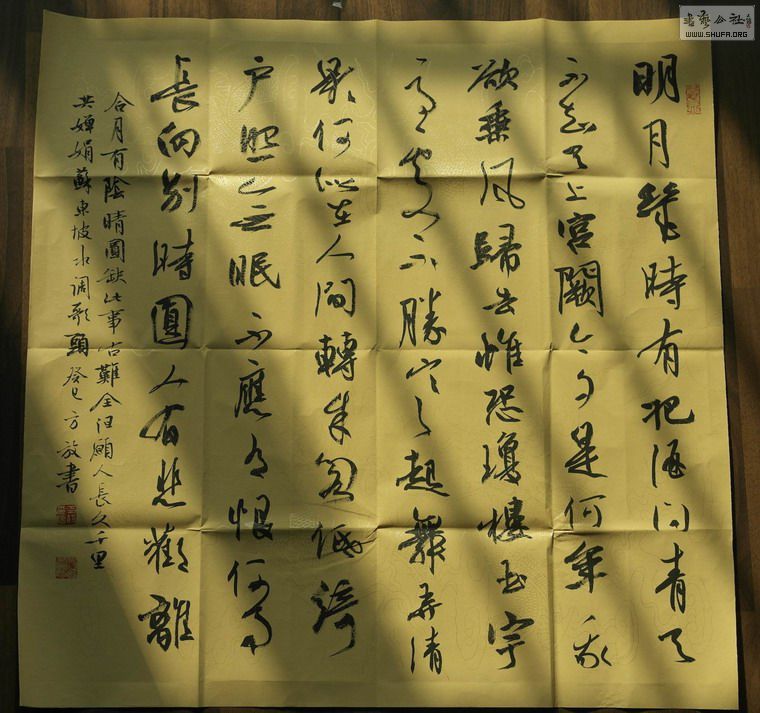 明月幾時有把酒问青天
不知天上宫闕今夕是何年我
欲乘风歸去惟恐瓊樓玉宇
高處不勝寒起舞弄清
影何似在人间轉朱阁低绮
户照無眠不應有恨何事
長向别時圓人有悲歡離
合月有陰晴圓缺此事古難全但願人長久千里
共嬋娟蘇東坡水调歌頭癸巳方放書
書藝公社
WWW.SHUFA.ORG